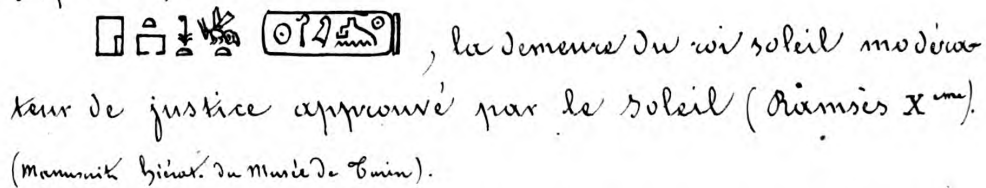 , la demeure du roi soleil modéra-
teur de justice approuvé par le soleil (Râmsès X eme).
(Manuscrit hiérat. du Musée de Turin).